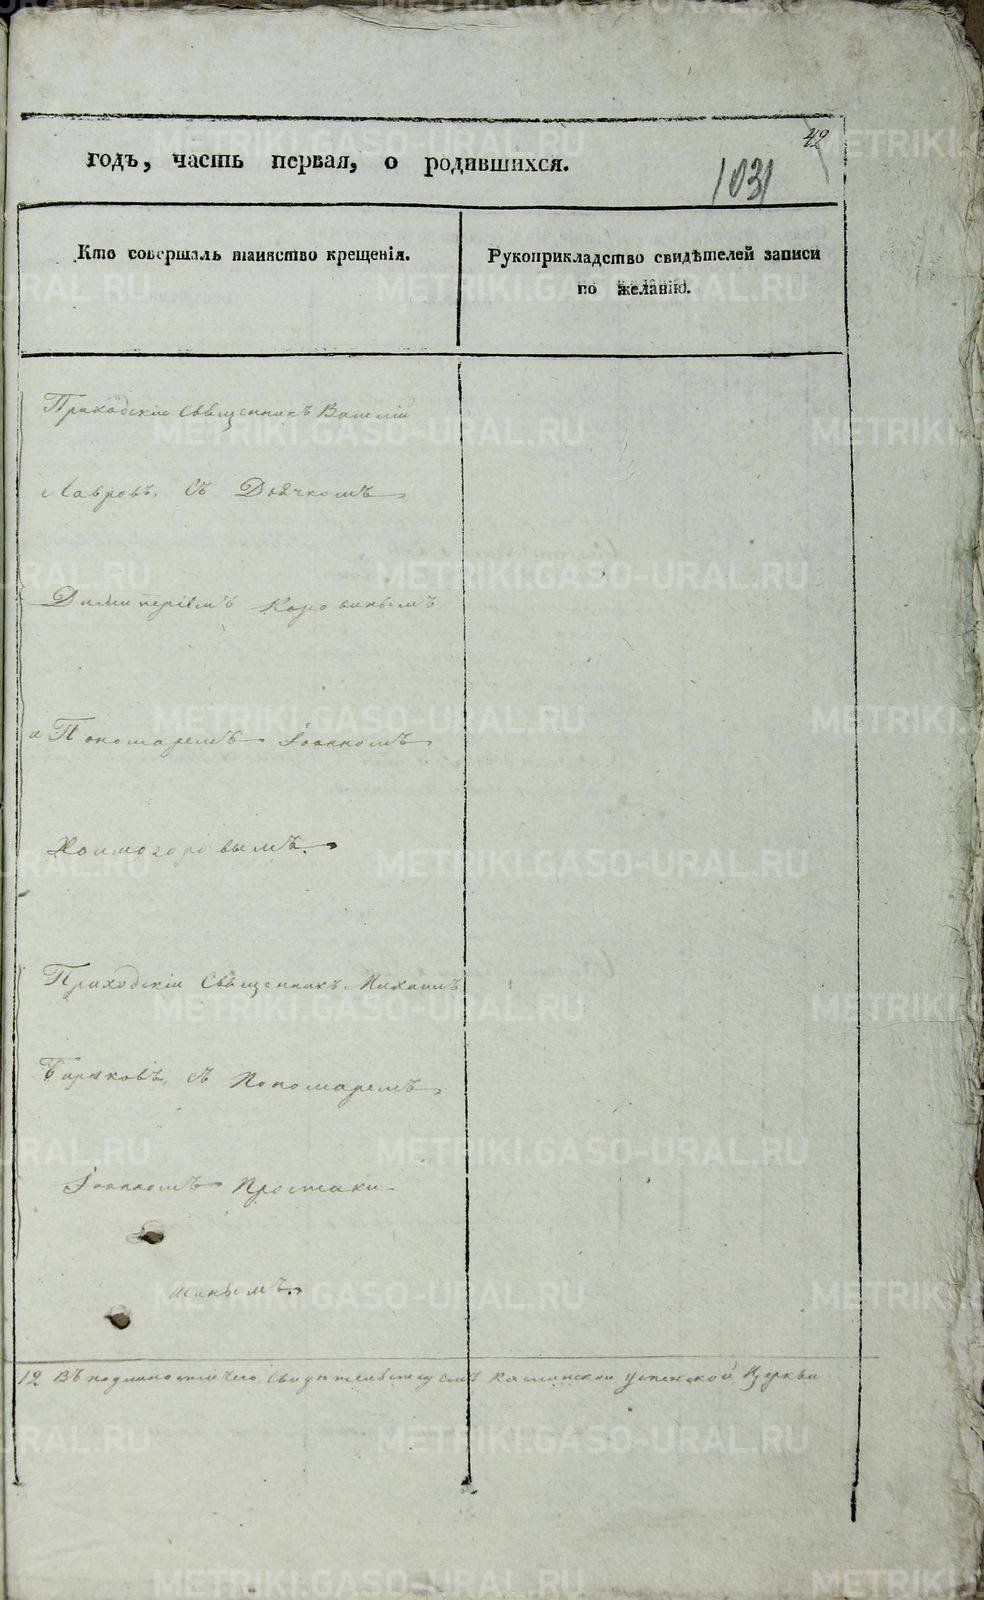 42
годъ, часть первая, о родившихся.
1031
Кто совершалъ таинство крещенія.
Рукоприкладство свидѣтелей записи
по желанію.
Приходскій Священникъ Василій
Лавровъ, съ Дьячкомъ
Димитріемъ Коровинымъ
и Пономаремъ Іоанномъ
Холмогоровымъ.
Приходскій Священникъ Михаилъ
Бирюковъ, съ Пономаремъ
Іоанномъ Простаки-
шинымъ.
12 Въ подлинности чего свидѣтельствуемъ Каслинской Успенской Церкви
METRIKI.GASO-URAL.RU